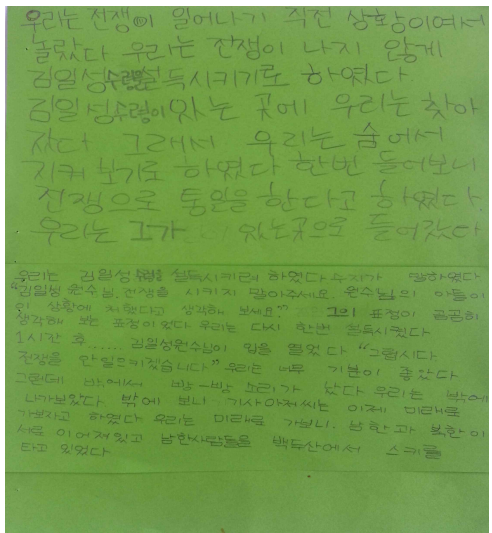 우리는 전쟁이 일어나기 직전 상황이여서
놀랐다 우리는 전쟁이 나지 않게
김일성수령을설득시키기로 하였다.
김일성수령이있는 곳에 우리는 찾아
갔다 그래서 우리는 숨어서
지켜보기로 하였다 한번 들어보니
전쟁으로 통일을 한다고 하였다
우리는 그가 있는곳으로 들어갔다
우리는 김일성수령을 설득시키려 하였다 수지가 말하였다
"김일성 원수님. 전쟁을 시키지 말아주세요. 원수님의 아들이
이 상황에 처했다고 생각해 보세요!" 그의 표정이 곰곰히
생각해 보는 표정이었다 우리는 다시 한번 설득시켰다
1시간 후...... 김일성원수님이 입을 열었다 "그럽시다
전쟁을 안일으키겠습니다" 우리는 너무 기분이 좋았다
그런데 밖에서 빵-빵 소리가 났다 우리는 밖에
나가보았다. 밖에 보니 기사아저씨는 이제 미래로
가보자고 하였다 우리는 미래로 가보니. 남한과 북한이
서로 이어져있고 남한사람들은 백두산에서 스키를
타고 있었다